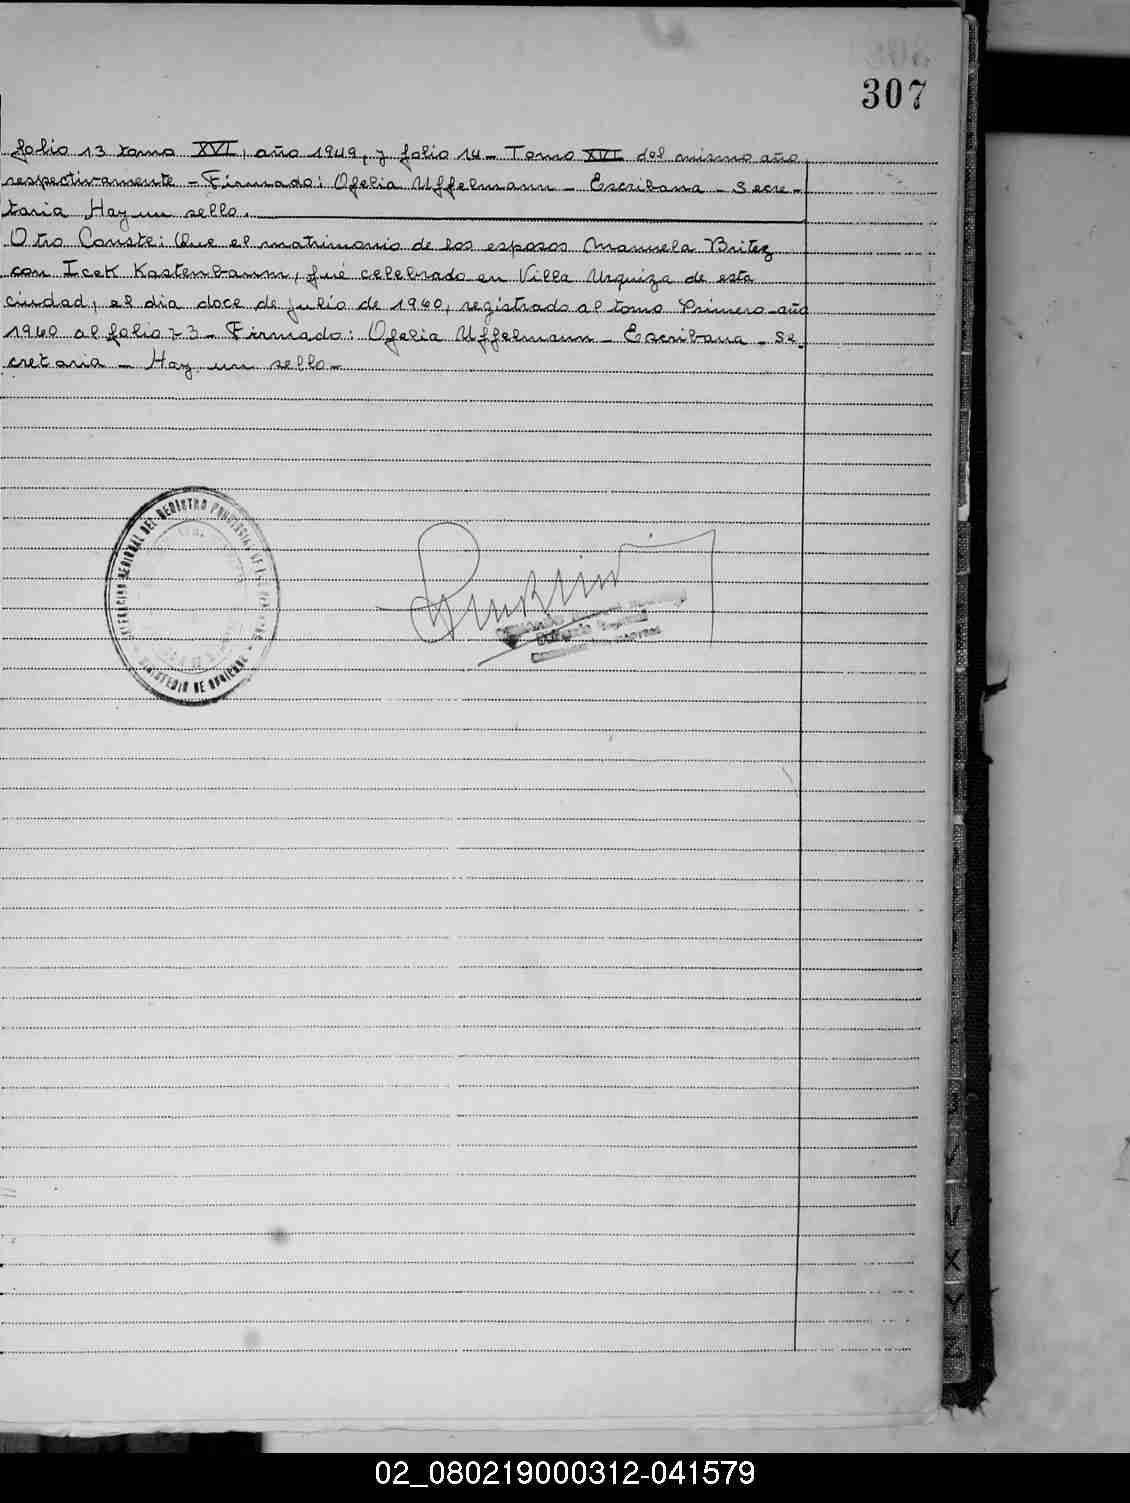 307
folio 13 tomo XVI, año 1949, y folio 14 - Tomo XVI del mismo año,
respectivamente - Firmado: Ofelia Uffelmann - Escribana - Secre-
taria Hay un sello.
Otro Conste: Que el matrimonio de los esposos Manuela Britez
con Icek Kastenbaum, fué celebrado en Villa Urquiza de esta
ciudad, el dia doce de julio de 1940, registrado al tomo Primero - año
1940 al folio 73 - Firmado: Ofelia Uffelmann - Escribana - Se-
cretaria - Hay un sello -
REGIONAL DEL REGISTRO PROVINCIAL DE LAS PERSONAS
MINISTERIO DE GOBIERNO
V
X
Y
Z
02_080219000312-041579